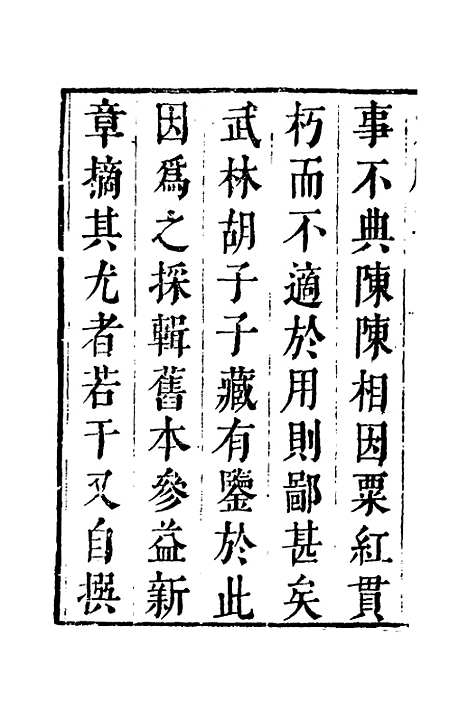 事不典陳陳相因粟紅貫
朽而不適於用則鄙甚矣
武林胡子子藏有鑒於此
因爲之採輯舊本參益新
章摘其尤者若干又自撰